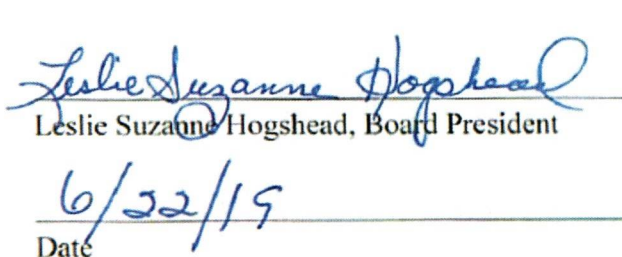 Leslie Suzanne Hogshead
Leslie Suzanne Hogshead, Board President
6/22/19
Date